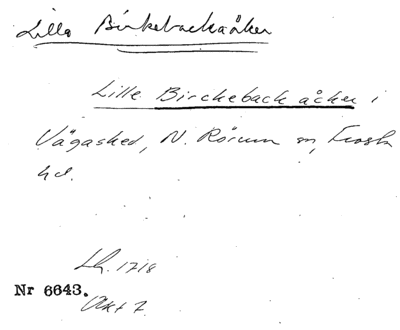 Lilla Birkebacksåker
Lille Bircheback åcker i
Vägasked, N. Rörum sn, Frosta
hd.
Lh. 1718
Nr 6643.
Akt 7